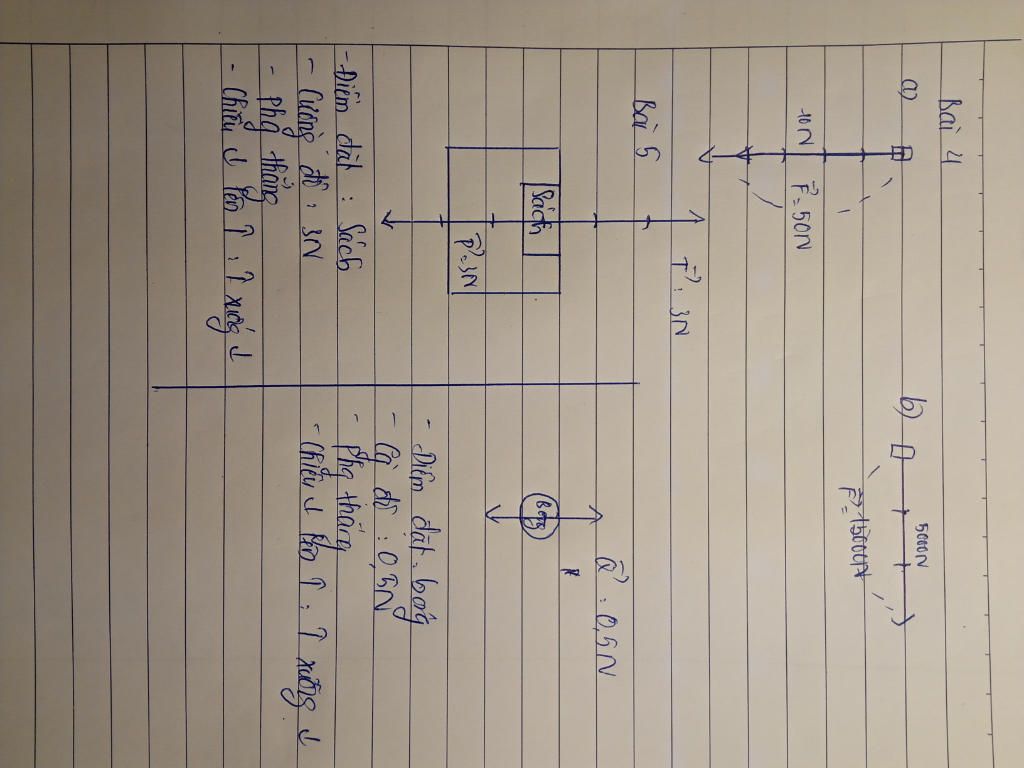 Bài 4
a)
10N
F = 50N
b)
5000N
F = 15000N
Bài 5
T : 3N
Sách
P = 3N
- Điểm đặt : Sách
- Cường độ : 3N
- phg thẳng
- Chiều ↓ lên ↑ : ↑ xuống ↓
Q : 0,5N
Bóng
- Điểm đặt : bóng
- Cg độ : 0,5N
- phg thẳng
- Chiều ↓ lên ↑ : ↑ xuống ↓